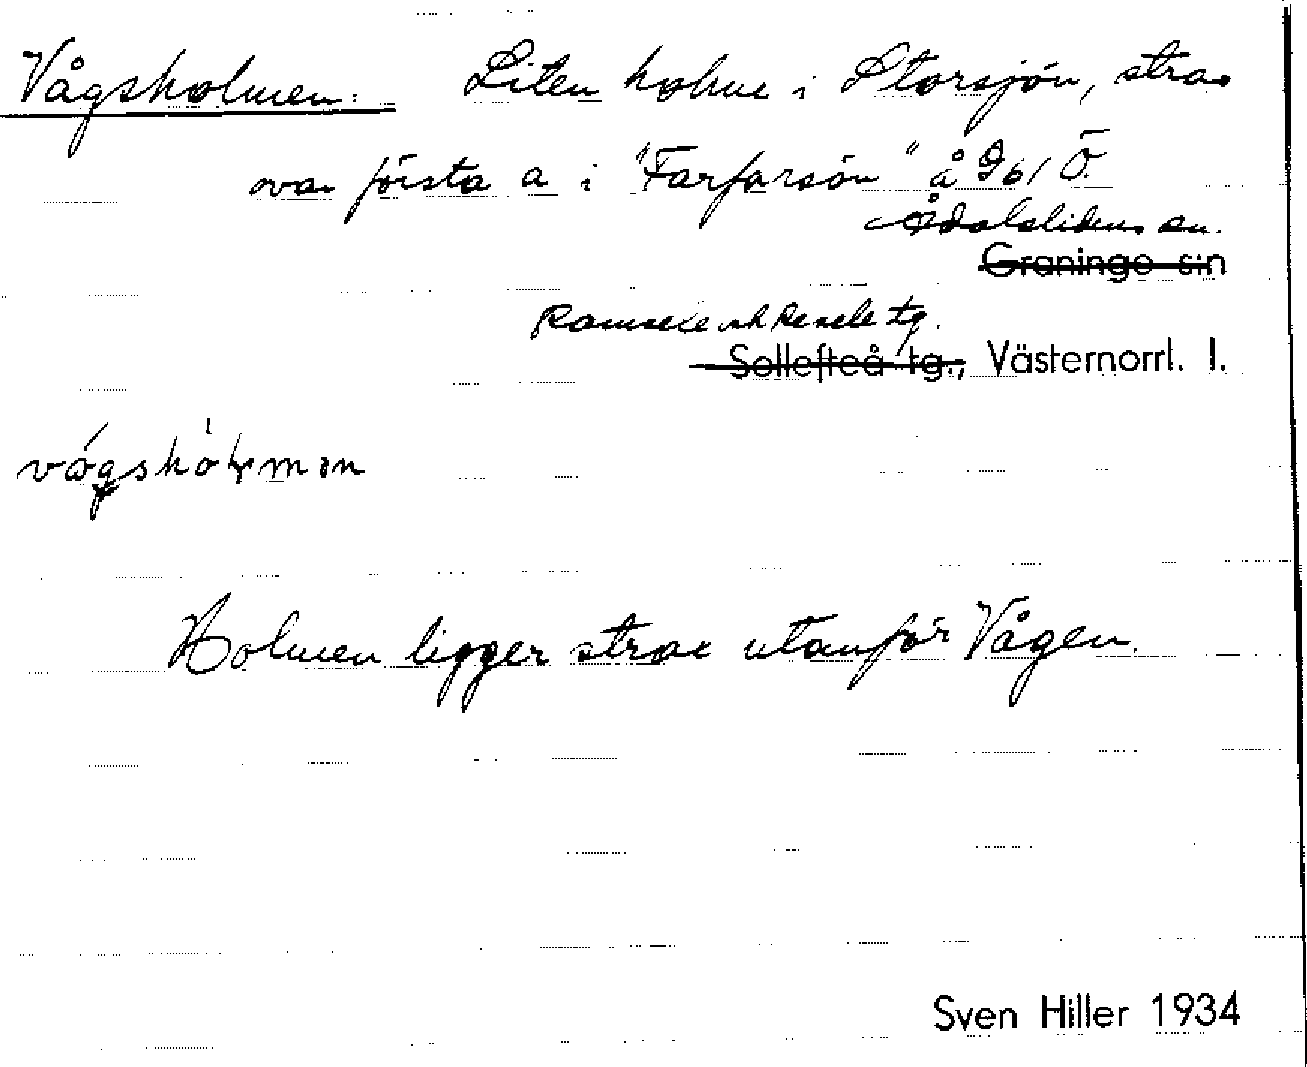 Vågsholmen. Liten holme i Storsjön, strax
ovan första a i "Farfarsön" å Gb 1 Ö
Ådalslidens sn.
Graninge s:n
Ramsele och Resele tg.
Sollefteå tg., Västernorrl. l.
vågshól̥mɘn
Holmen ligger strax utanför Vågen.
Sven Hiller 1934